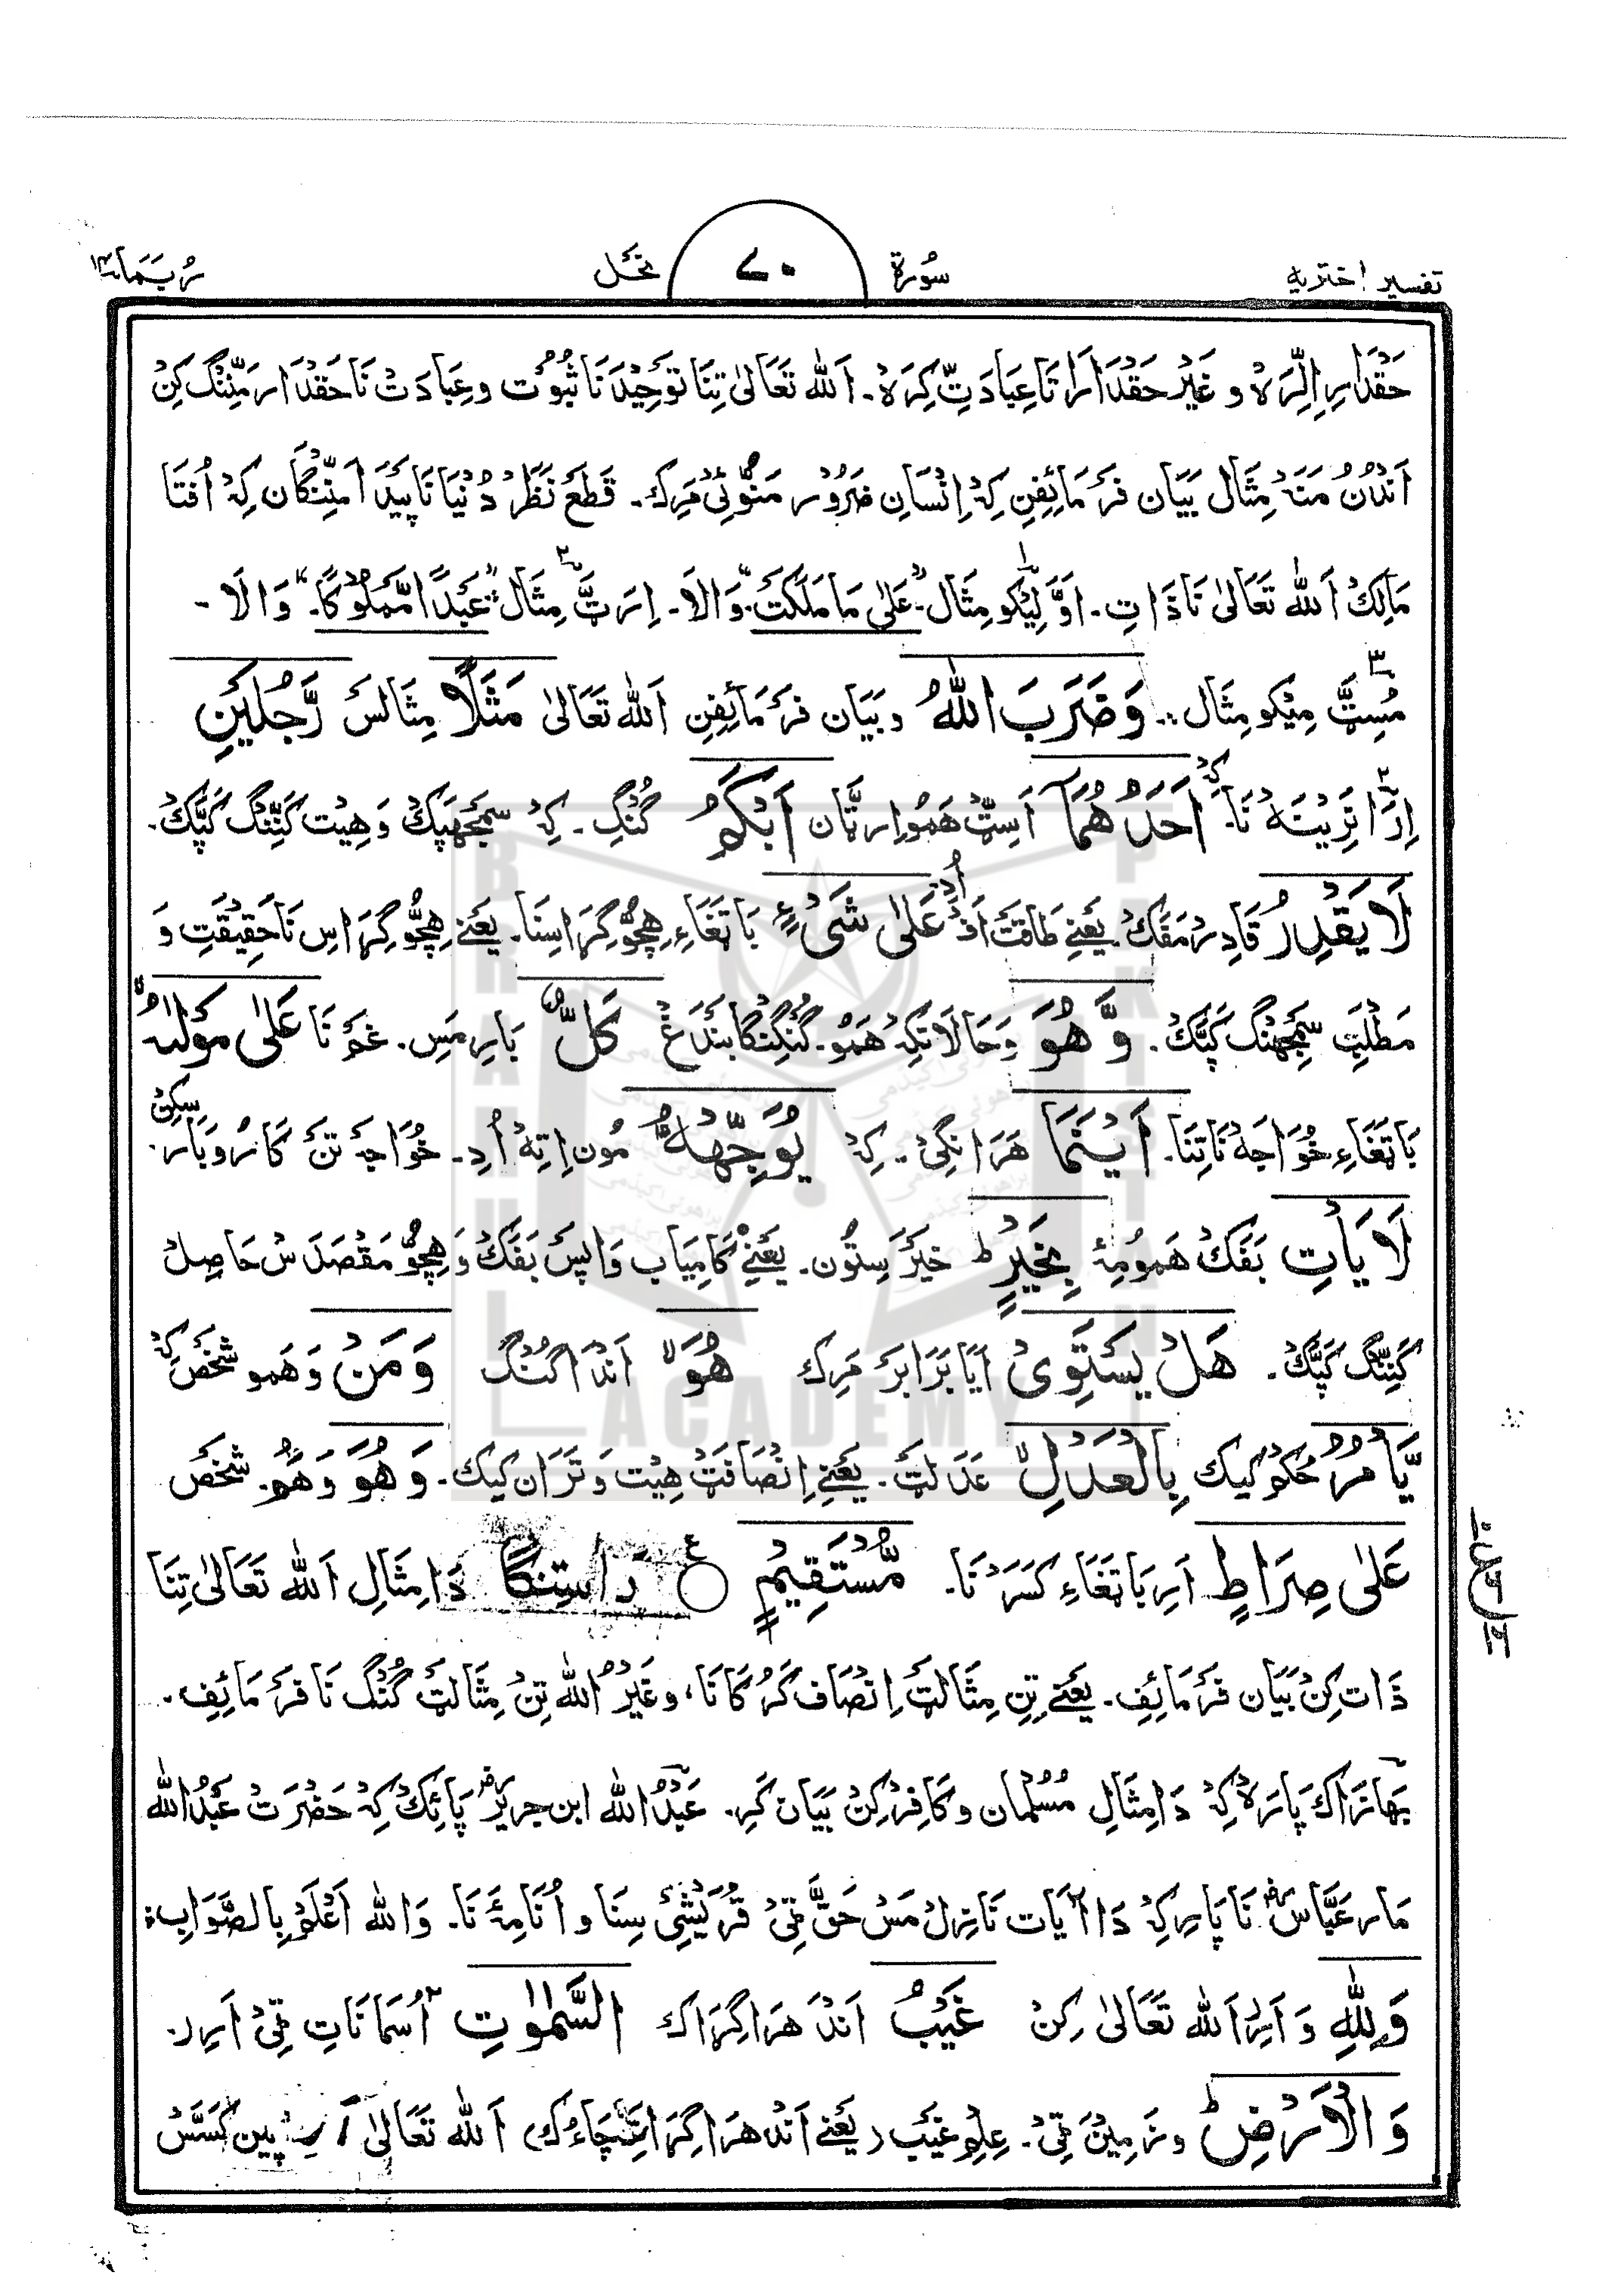 تفسیر اختریہ
سُورة
۷۰
نحَل
رُبَمَا ۱۴
حَقدَارِ اِلِّرَہ و غَیْر حَقدَارَاتَا عِبَادَتِّ کِرَہ۔ اَللّٰه تَعَالیٰ تِنَا تَوحِیْدنَا ثبُوُت و عِبَادَتْ نَا حَقدَار مَنِّنگ کِنْ
اَندُنْ مَنَہ مِثَال بَیَان فَرمَائِفِن کِہ اِنْسَان ضَرُوْر مَنّوئی مَرِک۔ قَطع نَظَرْ دُنْیَا نَا پَیْدَا مَنِّنگان کِہ اُفتَا
مَالِکْ اَللّٰه تَعَالیٰ نَا ذَاتِ۔ اَوَّلِیْکو مِثَال۔ "عَلیٰ مَا مَلَکَتْ" وَالَا۔ اِرَٹِّ مِثَال "عَبْدًا مَّمْلُوْکًا"۔ وَالَا۔
مُسِٹِّ مِیْکو مِثَال۔ وَضَرَبَ اللّٰهُ و بَیَان فَرمَائِفِن اَللّٰه تَعَالیٰ مَثَلًا مِثَالسَ رَّجُلَیْنِ
اِرَا نَرِیْنَہ نَا۔ کِہ اَحَدُهُمَآ اَسِٹْ هَمُو اِرتَّان اَبْکَمُ گُنگِ۔ کِہ سَمجھپَکْ وَ هِیْت کَنِّنگ کَپَّکْ۔
لَا یَقْدِرُ قَادِرْ مَفَکْ۔ یَعْنِے طَاقَتَ اُدْ عَلیٰ شَیْءٍ بَا تَغَاءِ هِچُّو گِرَاسِنَا۔ یَعنے هِچُّو گِرَاس نَا حَقِیْقَتِ وَ
مَطلَبِ سَمِجْهنگ کَپَّکْ۔ وَّهُوَ وَ حَالَانکِہ هَمُو۔ گُنگنگا بَندَغ کَلٌّ بَارِ مَس۔ غَم نَا عَلیٰ مَوْلٰهُ
بَا تَغَاءِ خُوَاجَہ نَا تِنَا۔ اَیْنَمَا هَرَانگی۔ کِہ یُوَجِّهْهُّ مُون اِتِہ اُدِ۔ خُوَاجَہ تَنَ کَارُوبَار سِکِنْ
لَا یَاْتِ بَفَکْ هَمُومِہْ بِخَیْرٍ ط خَیْرَ سِتُون۔ یَعنِے کَامِیَاب وَاپَس بَفَکْ وَ هِچُّو مَقْصَدَس حَاصِلْ
کَنِّنگ کَپَّکْ۔ هَلْ یَسْتَوِیْ اَیَا بَرَابَر مَرِک هُوَ لا اَندَا گُنگ وَمَنْ وَ هَمو شَخْص کِہ
یَّاْمُرُ حُکم کیک بِالْعَدْلِ لا عَدَلتَ۔ یَعنِے اِنْصَافَتْ هِیْت وَ تَرَان کیک۔ وَهُوَ وَ هَمُو شَخْص
عَلیٰ صِرَاطٍ اَرِ بَا تَغَاءِ کَسَرَ نَا۔ مُّسْتَقِیْمٍ ع رَاستِنگا دَا مِثَالِ اَللّٰه تَعَالیٰ تِنَا
ذَات کِنْ بَیَان فَرمَائِف۔ یَعنے تِنِ مِثَالتِ اِنْصَاف کَرُکَا نَا، وَ غَیْرُ اللّٰه تِنْ مِثَالتَ گُنگ نَا فَرمَائِفِ۔
بَهَازَاک پَارَہ کِہ دَا مِثَالِ مُسْلمَان و کَافِر کِنْ بَیَان کَرِ۔ عَبْدُ اللّٰه ابن جریرؓ پَائِک کِہ حَضْرَتْ عَبْدُ اللّٰه
مَار عَبَّاسؓ نَا پَارِ کِہ دَا آیَات نَازِل مَسْ حَقَّ ٹِی قُرَیْشِی سِنَا و اُنَا مِہْ نَا۔ وَاللّٰه اَعْلَمُ بِالصَّوَاب ۃ
وَلِلّٰهِ وَ اَرِ اَللّٰه تَعَالیٰ کِنْ غَیْبُ اَندْ هَرَا گِرَاک السَّمٰوٰتِ اُسمَانَاتِ ٹِی اَرِر۔
وَالْاَرْضِ ط و زَمِیْنْ ٹِی۔ عِلمِ غَیب (یَعنے اَندْ هَرَا گِرَاتِ چَاءُک) اَللّٰه تَعَالیٰ اَرِ پین کَسَّسْ